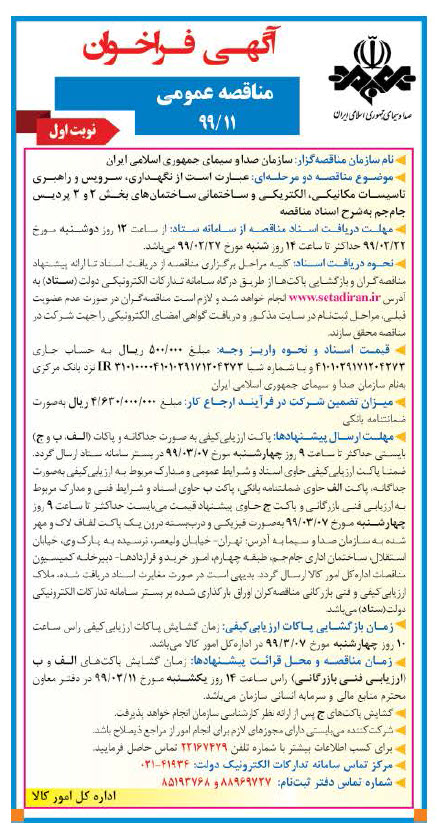 آگهی فراخوان
مناقصه عمومی
۹۹/۱۱
نوبت اول
صدا و سیمای جمهوری اسلامی ایران
نام سازمان مناقصه‌گزار: سازمان صدا و سیمای جمهوری اسلامی ایران
موضوع مناقصه دو مرحله‌ای: عبارت است از نگهداری، سرویس و راهبری
تاسیسات مکانیکی، الکتریکی و ساختمانی ساختمان‌های بخش ۲ و ۳ پردیس
جام‌جم به‌شرح اسناد مناقصه
مهلت دریافت اسناد مناقصه از سامانه ستاد: از ساعت ۱۲ روز دوشنبه مورخ
۹۹/۰۲/۲۲ حداکثر تا ساعت ۱۴ روز شنبه مورخ ۹۹/۰۲/۲۷ می‌باشد.
نحوه دریافت اسناد: کلیه مراحل برگزاری مناقصه از دریافت اسناد تا ارائه پیشنهاد
مناقصه‌گران و بازگشایی پاکت‌ها از طریق درگاه سامانه تدارکات الکترونیکی دولت (ستاد) به
آدرس www.setadiran.ir انجام خواهد شد و لازم است مناقصه‌گران در صورت عدم عضویت
قبلی، مراحل ثبت‌نام در سایت مذکور و دریافت گواهی امضای الکترونیکی را جهت شرکت در
مناقصه محقق سازند.
قیمت اسناد و نحوه واریز وجه: مبلغ ۵۰۰/۰۰۰ ریال به حساب جاری
۴۱۰۱۰۲۹۱۷۱۲۰۴۲۷۳ و با شماره شبا IR ۳۱۰۱۰۰۰۰۴۱۰۱۰۲۹۱۷۱۲۰۴۲۷۳ نزد بانک مرکزی
به‌نام سازمان صدا و سیمای جمهوری اسلامی ایران
میزان تضمین شرکت در فرآیند ارجاع کار: مبلغ ۴/۶۳۰/۰۰۰/۰۰۰ ریال به‌صورت
ضمانتنامه بانکی
مهلت ارسال پیشنهادها: پاکت ارزیابی‌کیفی به صورت جداگانه و پاکات (الف، ب و ج)
بایستی حداکثر تا ساعت ۹ روز چهارشنبه مورخ ۹۹/۰۳/۰۷ در بستر سامانه ستاد ارسال گردد.
ضمنا پاکت ارزیابی‌کیفی حاوی اسناد و شرایط عمومی و مدارک مربوط به ارزیابی‌کیفی به‌صورت
جداگانه، پاکت الف حاوی ضمانتنامه بانکی، پاکت ب حاوی اسناد و شرایط فنی و مدارک مربوط
به ارزیابی فنی بازرگانی و پاکت ج حاوی پیشنهاد قیمت می‌بایست حداکثر تا ساعت ۹ روز
چهارشنبه مورخ ۹۹/۰۳/۰۷ به‌صورت فیزیکی و دربسته درون یک پاکت لفاف لاک و مهر
شده به سازمان صدا و سیما به آدرس: تهران- خیابان ولیعصر، نرسیده به پارک وی، خیابان
استقلال، ساختمان اداری جام‌جم، طبقه چهارم، امور خرید و قراردادها- دبیرخانه کمیسیون
مناقصات اداره کل امور کالا ارسال گردد. بدیهی است در صورت مغایرت اسناد دریافت شده، ملاک
ارزیابی کیفی و فنی بازرگانی مناقصه‌گران اوراق بارگذاری شده بر بستر سامانه تدارکات الکترونیکی
دولت (ستاد) می‌باشد.
زمان بازگشایی پاکات ارزیابی‌کیفی: زمان گشایش پاکات ارزیابی کیفی راس ساعت
۱۰ روز چهارشنبه مورخ ۹۹/۳/۰۷ در اداره‌کل امور کالا می‌باشد.
زمان مناقصه و محل قرائت پیشنهادها: زمان گشایش پاکت‌های الف و ب
(ارزیابی فنی بازرگانی) راس ساعت ۱۴ روز یکشنبه مورخ ۹۹/۰۳/۱۱ در دفتر معاون
محترم منابع مالی و سرمایه انسانی سازمان می‌باشد.
گشایش پاکت‌های ج پس از ارائه نظر کارشناسی سازمان انجام خواهد پذیرفت.
شرکت‌کننده می‌بایستی دارای مجوزهای لازم برای انجام امور از مراجع ذیصلاح باشد.
برای کسب اطلاعات بیشتر با شماره تلفن ۲۲۱۶۷۴۲۹ تماس حاصل فرمایید.
مرکز تماس سامانه تدارکات الکترونیک دولت: ۴۱۹۳۴-۰۲۱
شماره تماس دفتر ثبت‌نام: ۸۸۹۶۹۷۳۷ و ۸۵۱۹۳۷۶۸
اداره کل امور کالا